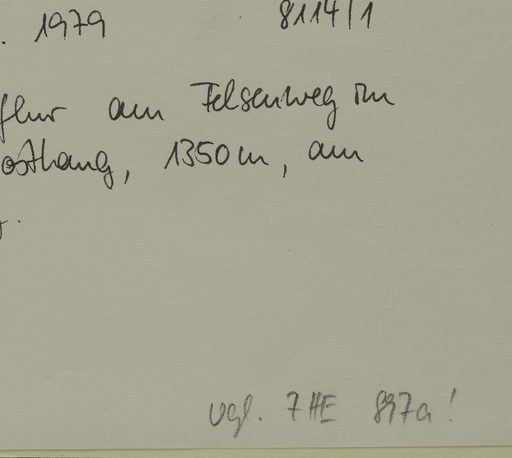 . 1979 8114/1
flur am Felsenweg im
osthang, 1350 m, am
.
vgl. 7 HE 897a!